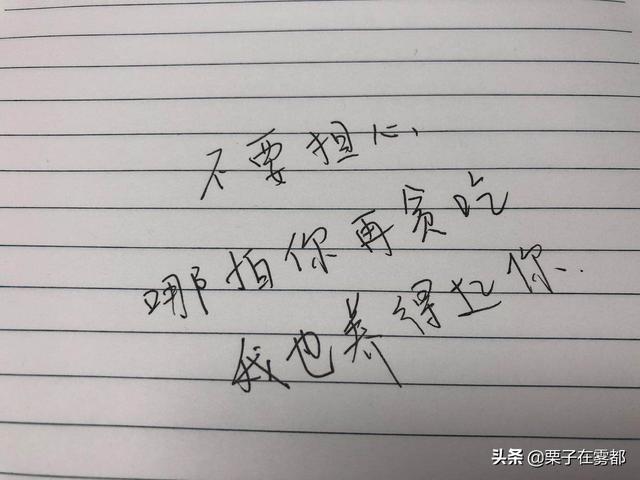 不要担心
哪怕你再贪吃
我也养得起你..
头条 @栗子在雾都